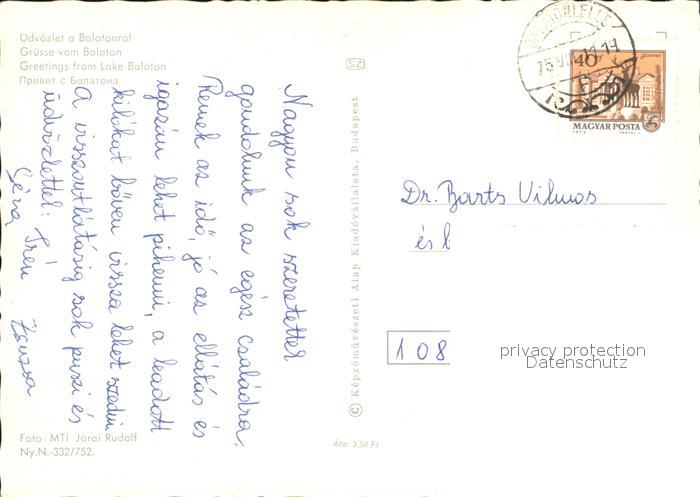 Üdvözlet a Balatonról
Grüsse vom Balaton
Greetings from Lake Balaton
Привет с Балатона
Nagyon sok szeretettel
gondolunk az egész családra.
Remek az idő, jó az ellátás és
igazán lehet pihenni, a leadott
kilókat bőven vissza lehet szedni.
A viszontlátásig sok puszi és
üdvözlettel:
Irén Zsuzsa
Foto: MTI Járai Rudolf
Ny.N.-332/752.
SZ
© Képzőművészeti Alap Kiadóvállalata, Budapest
Ára: 3,50 Ft
40 f
MAGYAR POSTA
Dr. Barts Vilmos
és
108
privacy protection
Datenschutz